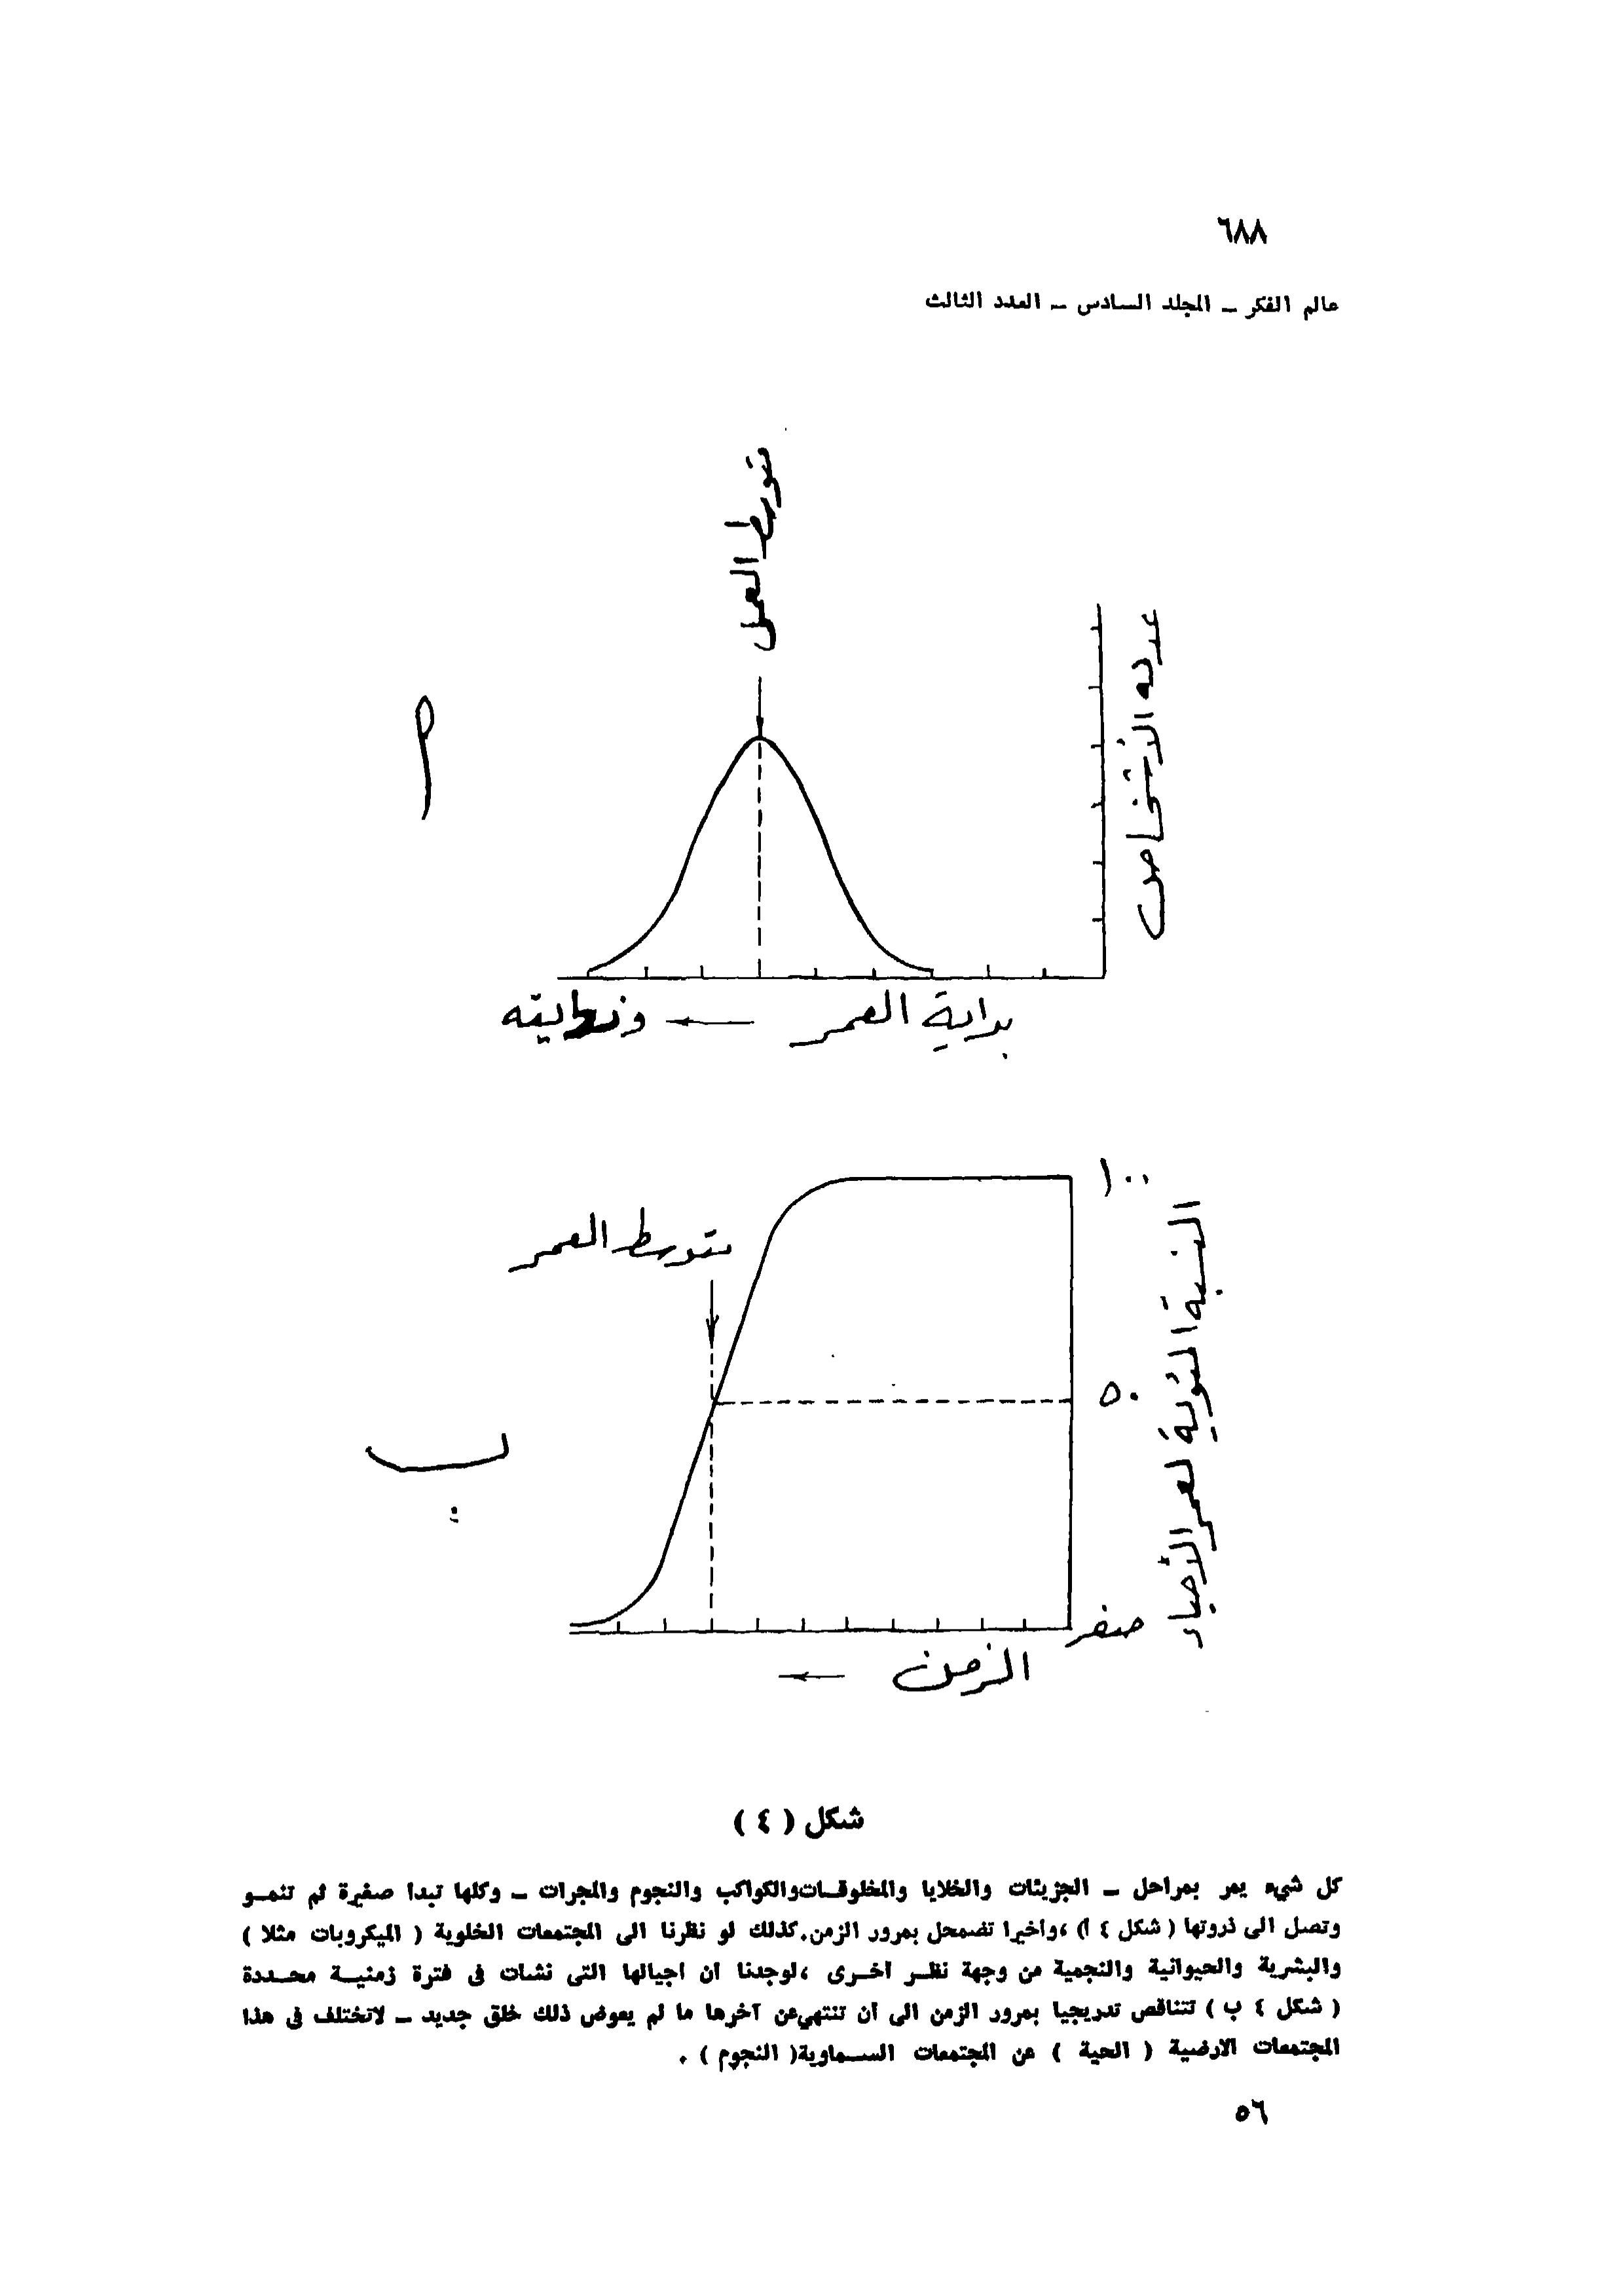 ٦٨٨
عالم الفكر – المجلد السادس – العدد الثالث
متوسط العمر
عدد الأشخاص
أ
بداية العمر ← ونهايته
١٠٠
متوسط العمر
النسبة المئوية لعمر الأحياء
٥٠
ب
صفر
الزمن ←
شكل ( ٤ )
كل شيء يمر بمراحل – الجزيئات والخلايا والمخلوقات والكواكب والنجوم والمجرات – وكلها تبدا صغيرة ثم تنمو
وتصل الى ذروتها ( شكل ٤ أ ) ، واخيرا تضمحل بمرور الزمن . كذلك لو نظرنا الى المجتمعات الخلوية ( الميكروبات مثلا )
والبشرية والحيوانية والنجمية من وجهة نظر اخرى ، لوجدنا ان اجيالها التى نشات فى فترة زمنية محددة
( شكل ٤ ب ) تتناقص تدريجيا بمرور الزمن الى ان تنتهي عن آخرها ما لم يعوض ذلك خلق جديد – لاتختلف فى هذا
المجتمعات الارضية ( الحية ) عن المجتمعات السماوية ( النجوم ) .
٥٦